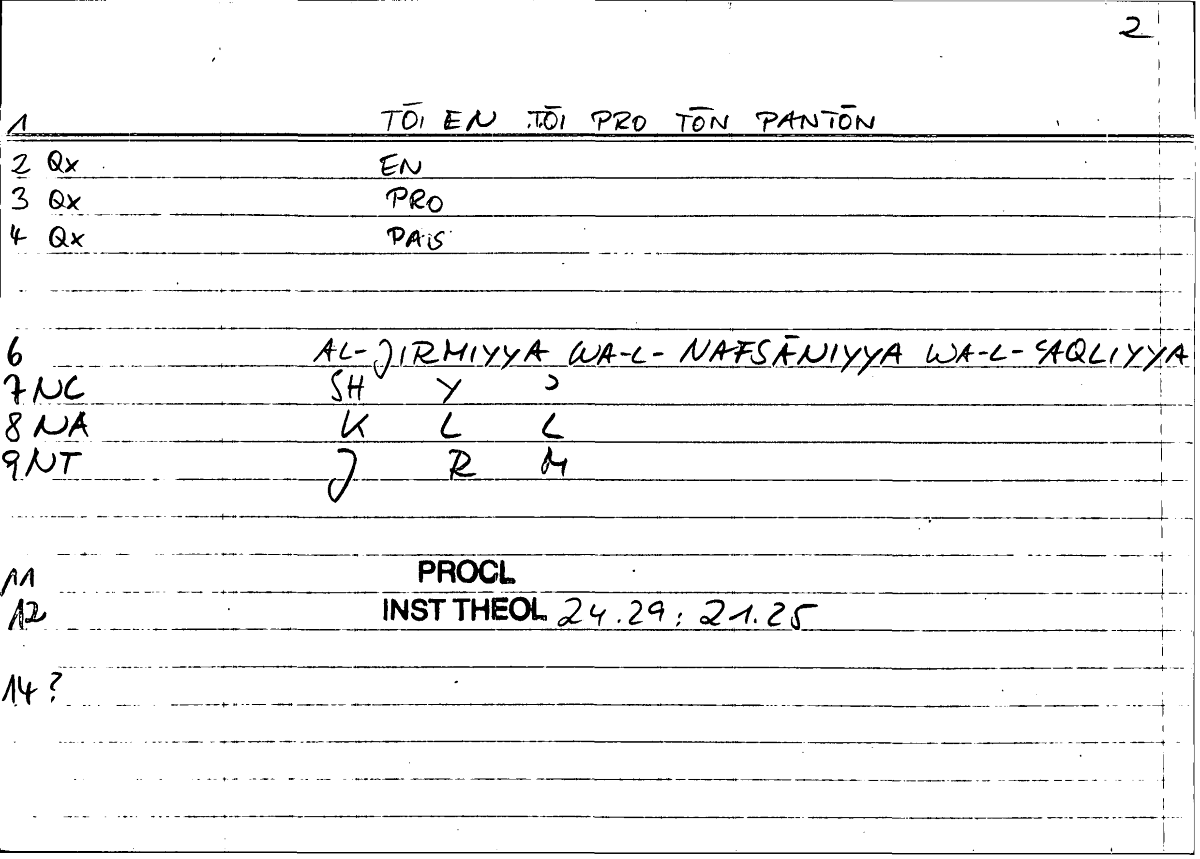 2
1 TŌI EN TŌI PRO TŌN PANTŌN
2 Qx EN
3 Qx PRO
4 Qx PAS
6 AL-JIRMIYYA WA-L-NAFSĀNIYYA WA-L-ʿAQLIYYA
7 NC SH Y ʾ
8 NA K L L
9 NT J R M
11 PROCL
12 INST THEOL 24.29 : 21.25
14 ?